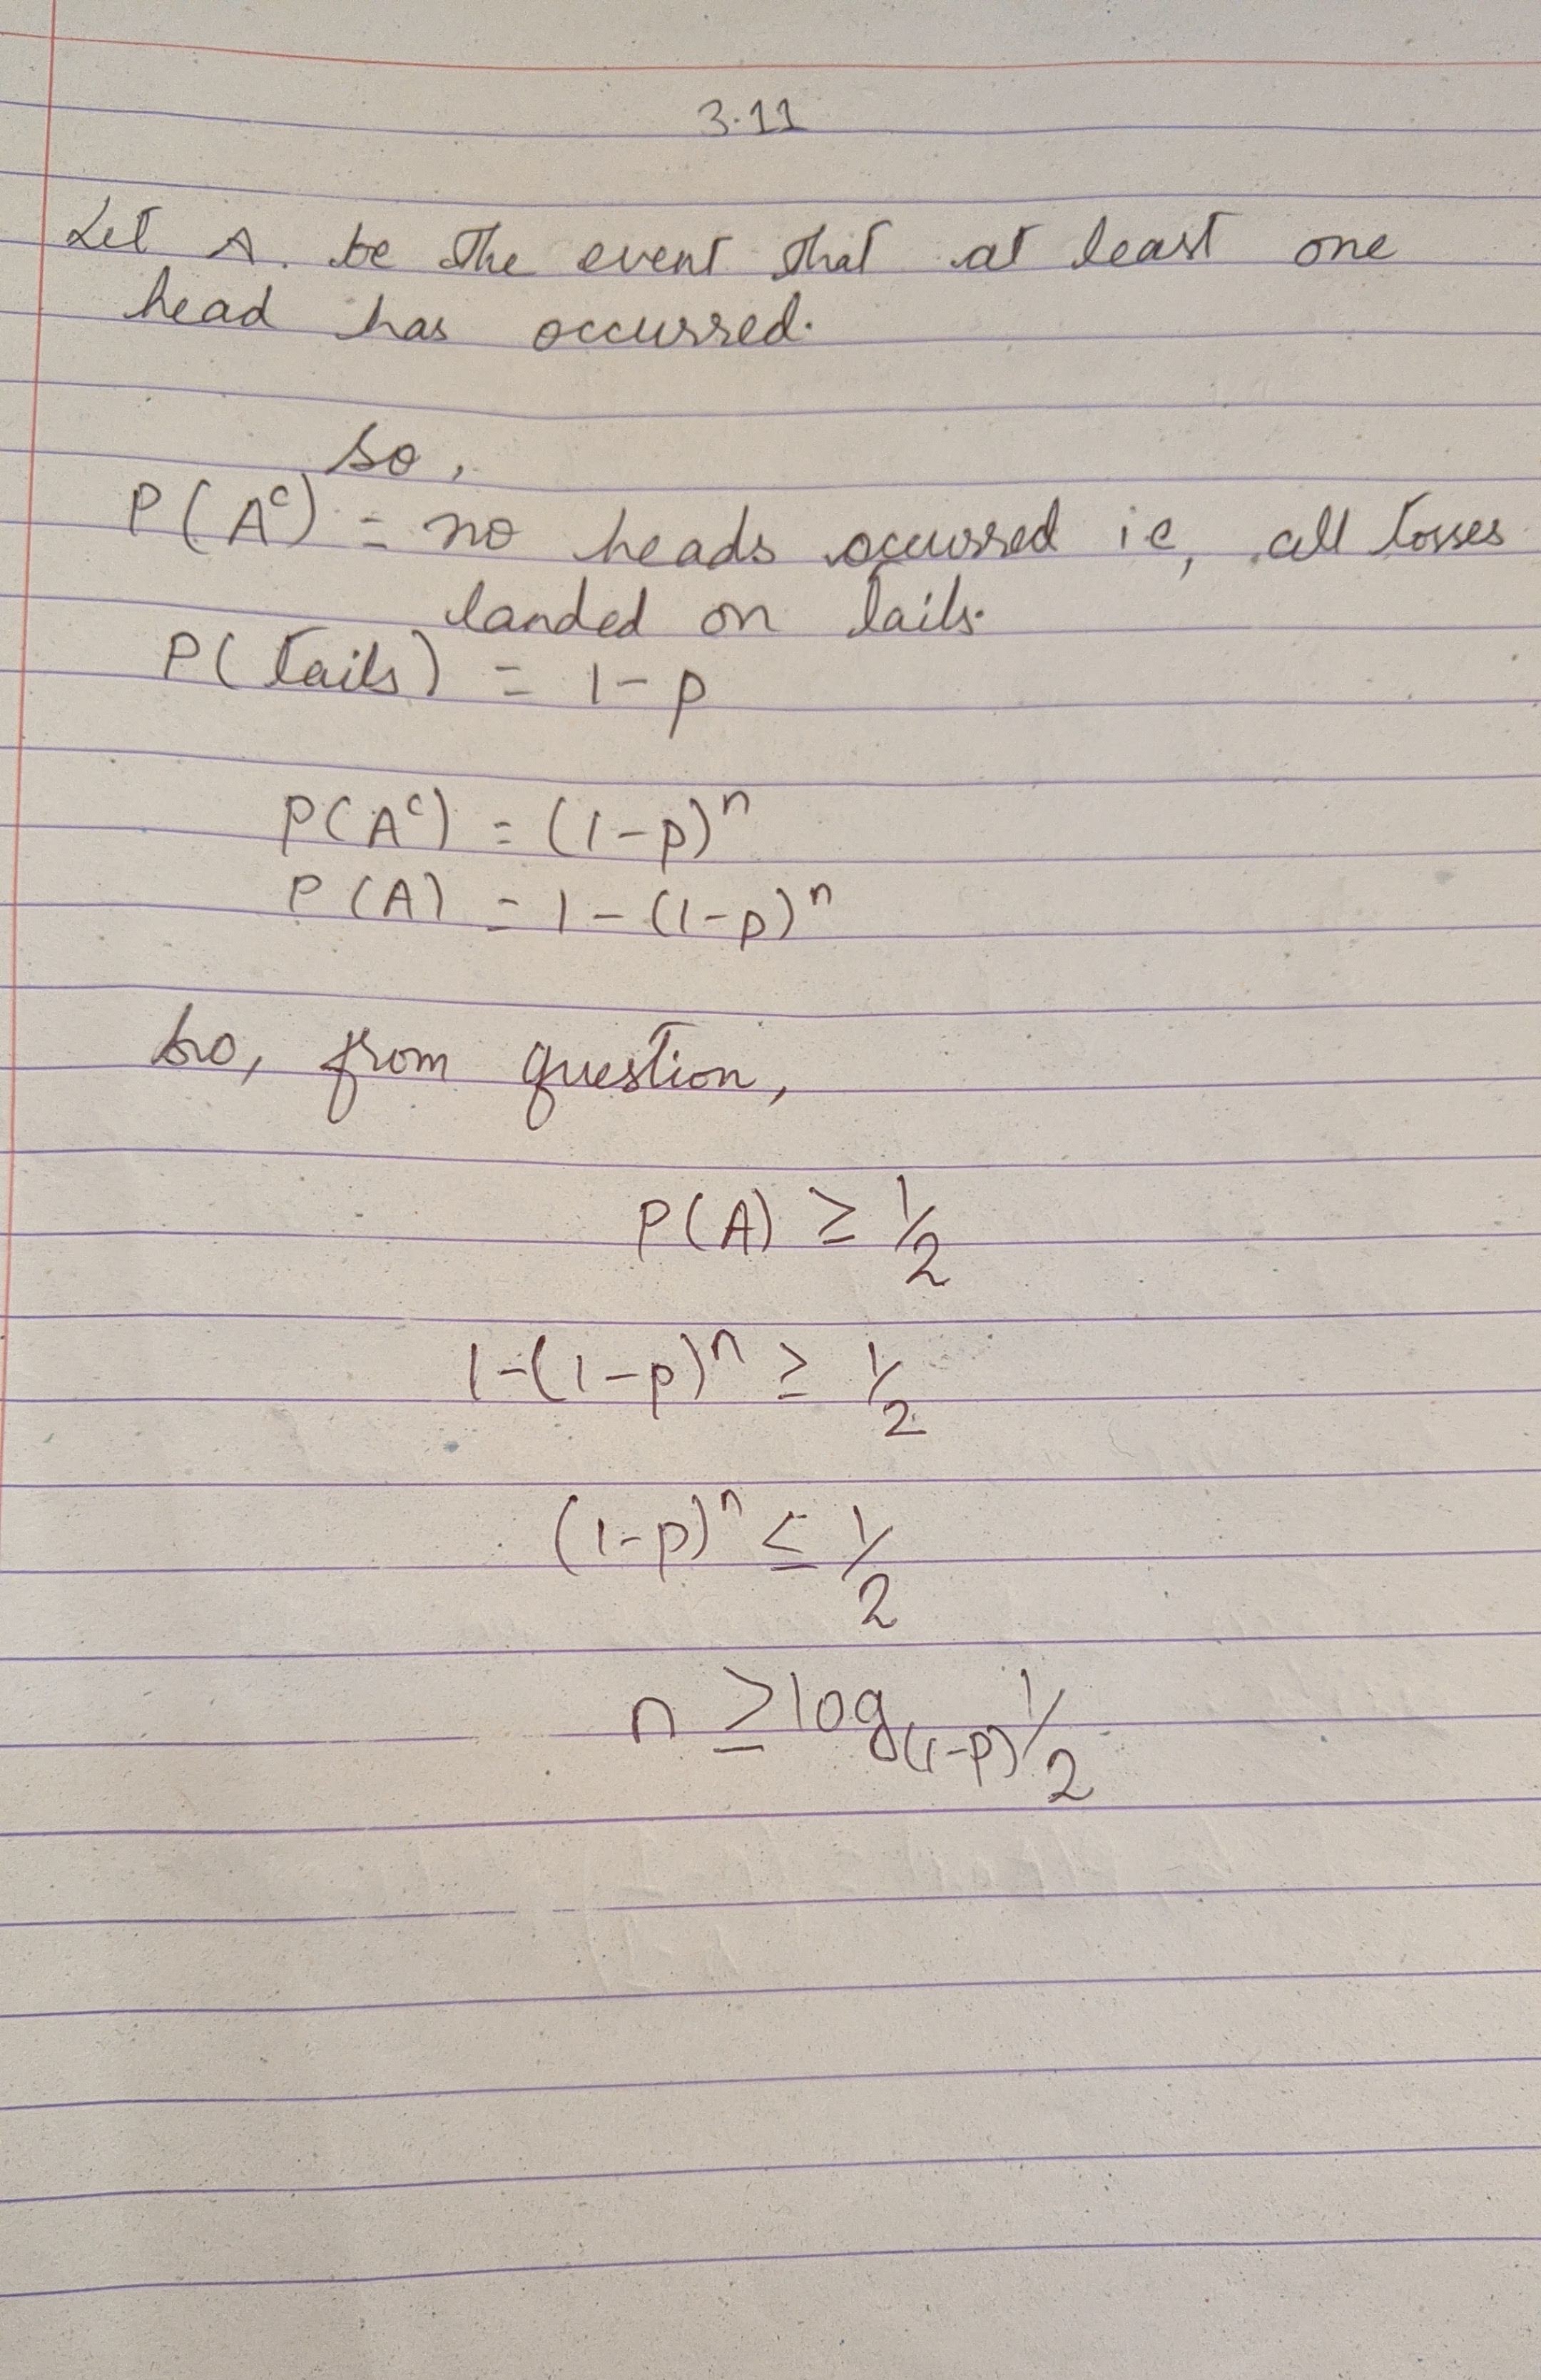 3.11
Let A. be the event that at least one
head has occurred.
so,
P(Aᶜ) = no heads occurred ie, all tosses
landed on tails.
P(tails) = 1-p
P(Aᶜ) = (1-p)ⁿ
P(A) = 1-(1-p)ⁿ
so, from question,
P(A) ≥ 1/2
1-(1-p)ⁿ ≥ 1/2
(1-p)ⁿ ≤ 1/2
n ≥ log₍₁₋ₚ₎ 1/2